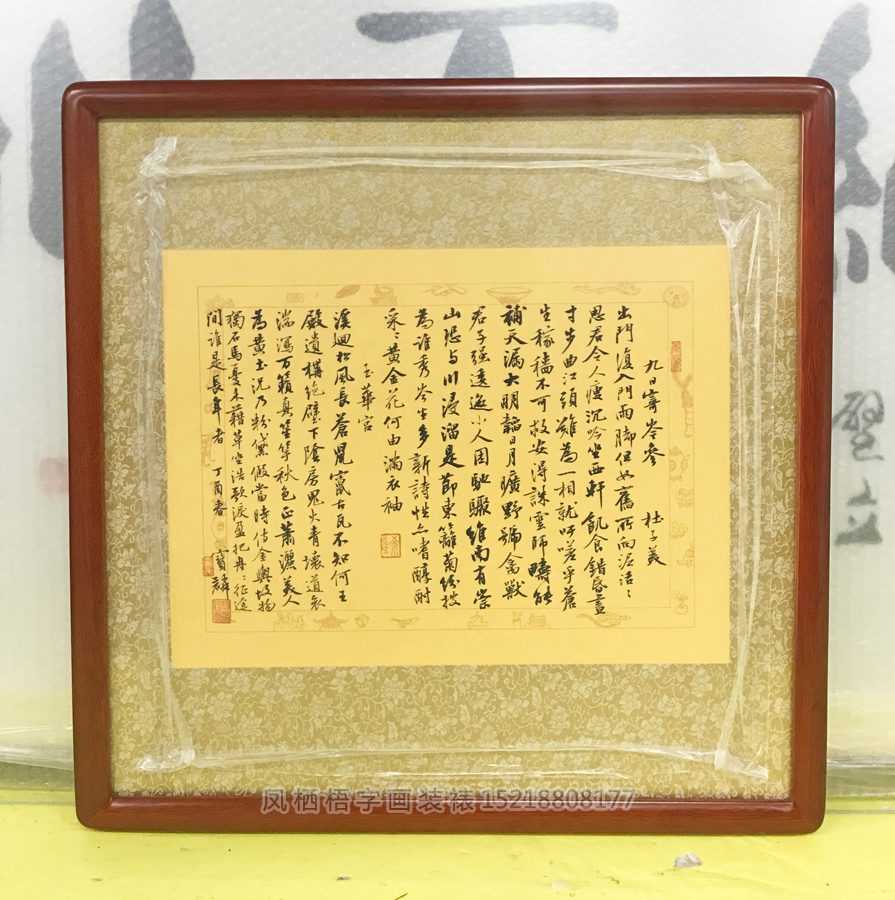 九日寄岑參 杜子美
出門復入門雨脚但如舊所向泥活〻
思君令人瘦沉吟坐西軒飲食錯昏晝
寸步曲江頭難為一相就吁嗟乎蒼
生稼穡不可救安得誅雲師疇能
補天漏大明韜日月曠野號禽獸
君子強逶迤小人困馳驟維南有崇
山恐与川浸溜是節東籬菊紛披
為誰秀岑生多新詩性亦嗜醇酎
采〻黃金花何由滿衣袖
玉華宮
溪迴松風長蒼鼠竄古瓦不知何王
殿遺構絕壁下陰房鬼火青壞道哀
湍瀉万籟真笙竽秋色正蕭灑美人
為黃土況乃粉黛假當時侍金輿故物
獨石馬憂來藉草坐浩歌淚盈把冉〻征途
間誰是長年者 丁酉春 寶麟
凤栖梧字画装裱15218808177